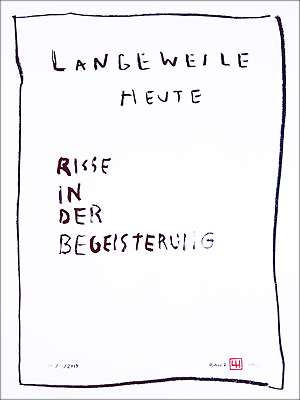 LANGEWEILE
HEUTE
RISSE
IN
DER
BEGEISTERUNG